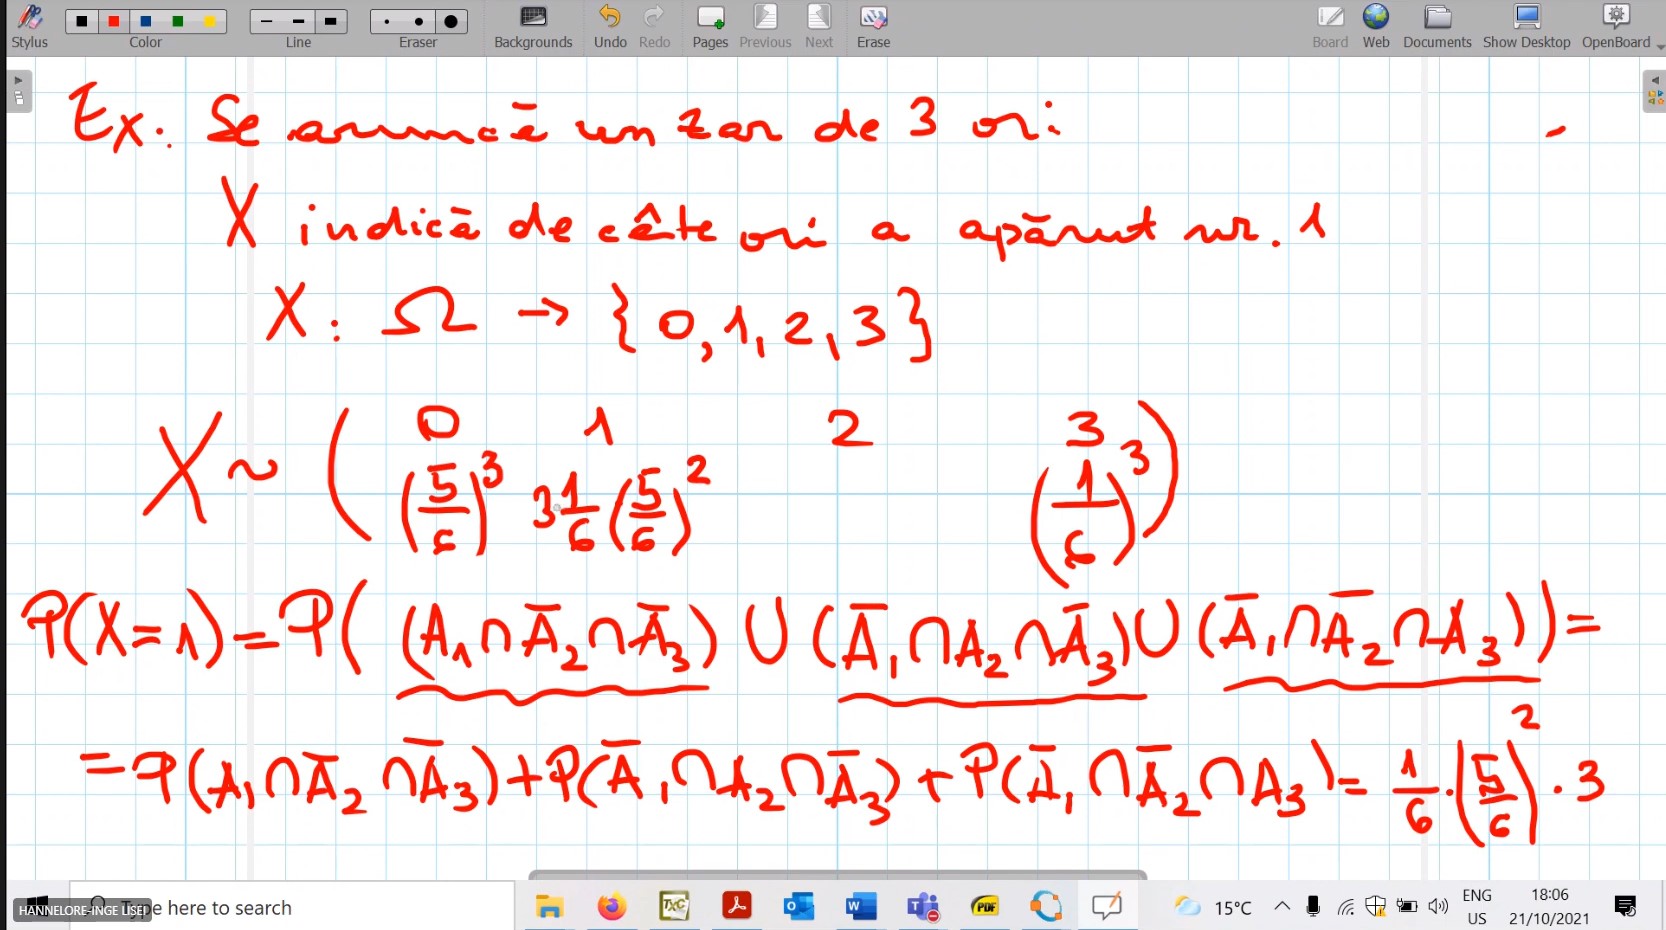 Stylus Color Line Eraser Backgrounds Undo Redo Pages Previous Next Erase Board Web Documents Show Desktop OpenBoard
Ex: Se aruncă un zar de 3 ori
X indică de câte ori a apărut nr. 1
X: Ω → {0, 1, 2, 3}
X ~ ( 0 1 2 3
(5/6)³ 3 1/6 (5/6)² (1/6)³ )
P(X=1) = P( (A₁∩Ā₂∩Ā₃) ∪ (Ā₁∩A₂∩Ā₃) ∪ (Ā₁∩Ā₂∩A₃) ) =
= P(A₁∩Ā₂∩Ā₃) + P(Ā₁∩A₂∩Ā₃) + P(Ā₁∩Ā₂∩A₃) = 1/6 · (5/6)² · 3
HANNELORE-INGE LISEI
Type here to search 15°C ENG 18:06
US 21/10/2021